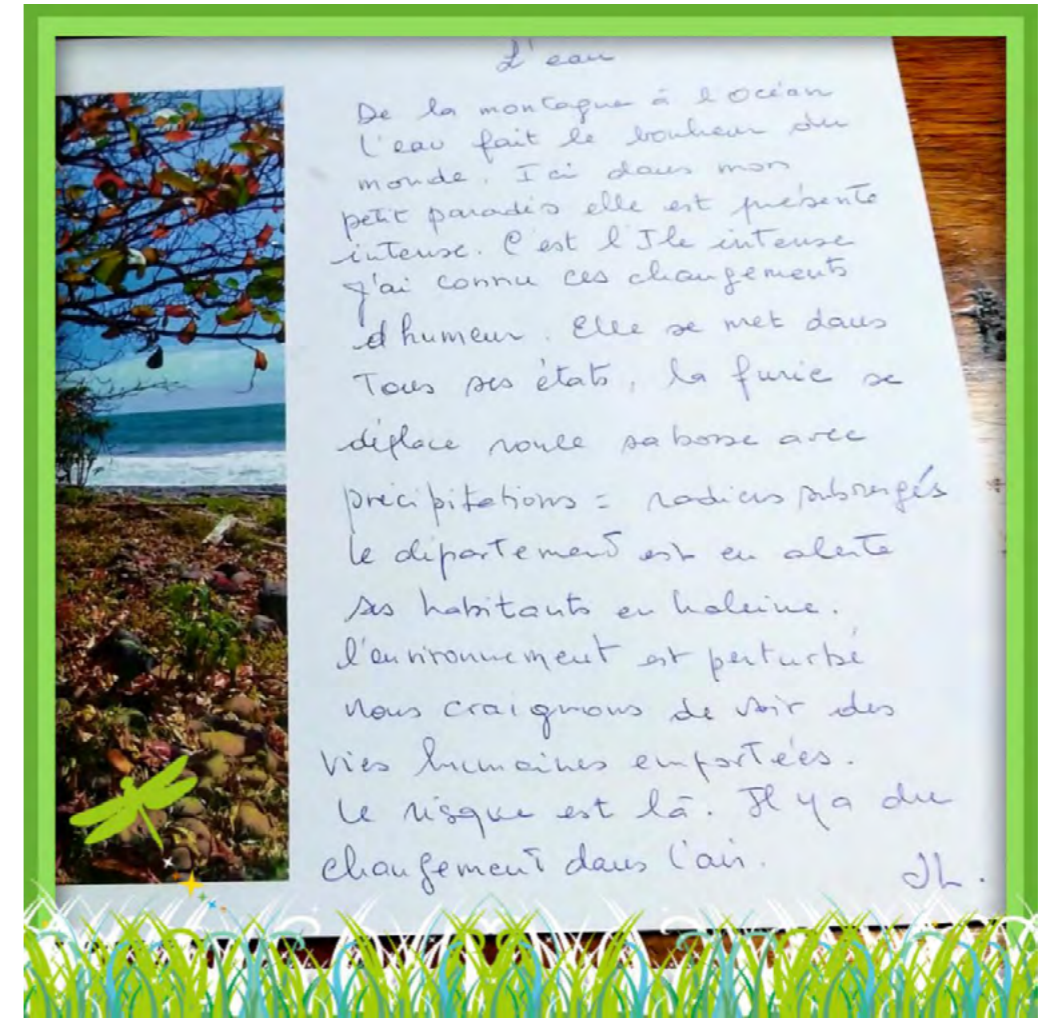 L'eau
De la montagne à l Océan
l'eau fait le bonheur du
monde. Ici dans mon
petit paradis elle est présente
intense. C'est l'Ile intense
J'ai connu ces changements
d'humeur. Elle se met dans
Tous ses états, la furie se
déplace roule sa bosse avec
précipitations = radiers submergés
le département est en alerte
ses habitants en haleine.
l'environnement est perturbé
Nous craignons de voir des
vies humaines emportées.
Le risque est là. Il y a du
changement dans l'air.
JL.